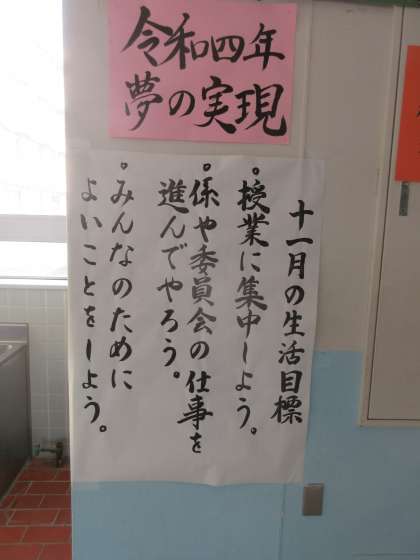 令和四年
夢の実現
十一月の生活目標
・授業に集中しよう。
・係や委員会の仕事を
進んでやろう。
・みんなのために
よいことをしよう。